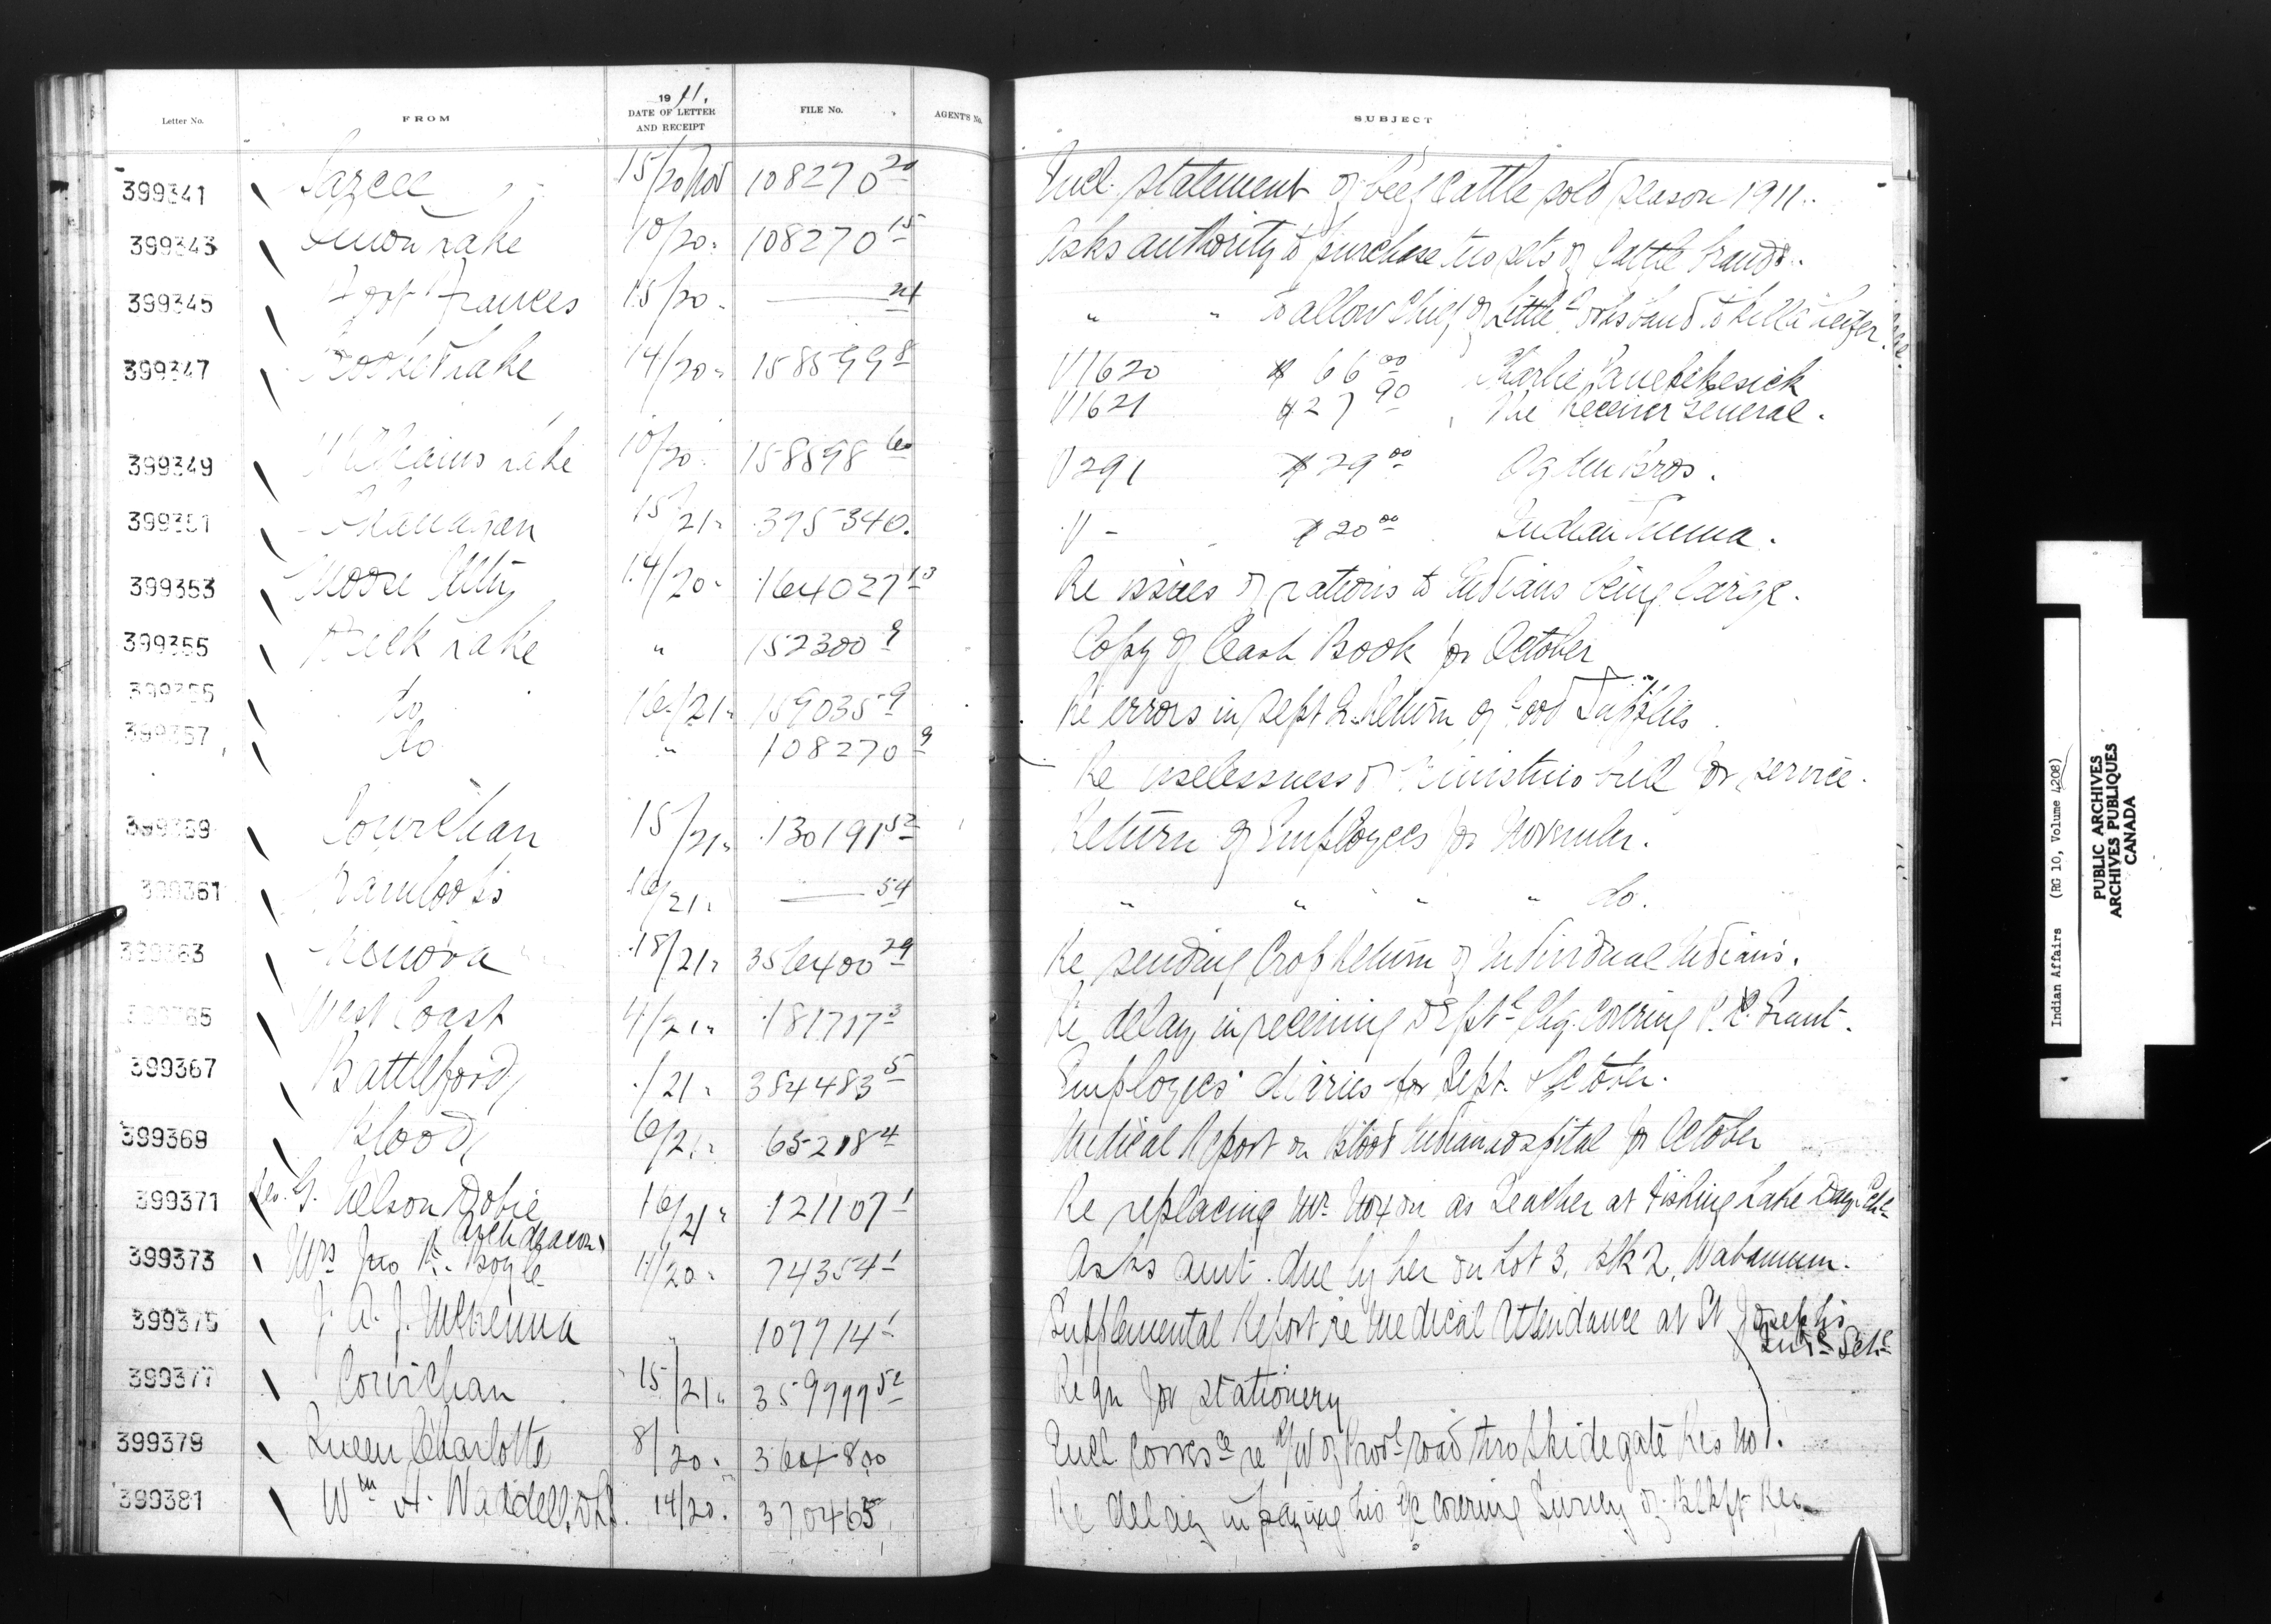 Letter No. FROM 1911. DATE OF LETTER AND RECEIPT FILE No. AGENT'S No. SUBJECT
399341 Sarcee 15/20 Nov 108270 20 Encl. statement of beef cattle sold season 1911.
399343 Onion Lake 10/20 " 108270 15 Asks authority to purchase two sets of Cattle brands.
399345 Fort Frances 15/20 " — 24 " " to allow Chief of Little band to kill a heifer
399347 Lake 14/20 " 158599 8 V1620 $66 00 Charlie
V1621 $27 90 The Receiver General.
399349 Williams Lake 10/20 " 158598 60 V291 $29 00 Bros.
399351 Okanagan 15/21 " 375340. V - $20 00 Indian Emma.
399353 Moose Mtn 14/20 " 164027 13 Re issues of rations to Indians being large.
399355 Birtle Lake " 152300 9 Copy of Cash Book for October
399356 do 16/21 " 159035 9 Re errors in Sept Qr. Return of Food Supplies
399357 do " 108270 9 Re uselessness of bull for service.
399359 Cowichan 15/21 " 130191 52 Return of Employees for November.
399361 Kamloops 16/21 " — 54 " " " " do.
399363 Kenora 18/21 " 356400 29 Re sending Crop Return of Individual Indians.
399365 West Coast 4/21 " 181717 3 Re delay in receiving Deptl Chq. covering Grant.
399367 Battleford /21 " 384483 5 Employees' diaries for Sept. & October.
399369 Blood 16/21 " 65218 4 Medical Report on Blood Indian Hospital for October
399371 Rev. G. Nelson Dobie 16/21 " 121107 1 Re replacing Mr. Noxon as Teacher at Fishing Lake Day Schl
399373 Mrs Jno R. Boyle 11/20 " 74354 1 Asks amt. due by her on Lot 3, Blk 2, Wabamun.
399375 J. A. J. McKenna " 107714 1 Supplemental Report re Medical Attendance at St Joseph's
Indl Schl
399377 Cowichan 15/21 " 359999 52 Reqn for stationery
399379 Queen Charlotte 8/20 " 364800 Encl. corresce re R/W of Provl road thro Skidegate Res No 1.
399381 Wm H. Waddell, DLS. 14/20 " 370465 Re delay in paying his a/c covering Survey of Res
Indian Affairs (RG 10, Volume 4208)
PUBLIC ARCHIVES
ARCHIVES PUBLIQUES
CANADA